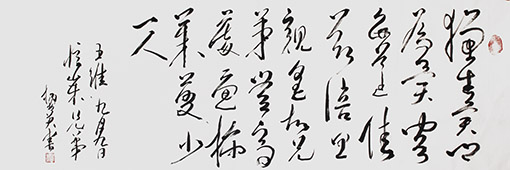 獨在異鄉
為異客
每逢佳
節倍思
親遙知兄
弟登高
處遍插
茱萸少
一人
王維九月九日
憶山東兄弟
書